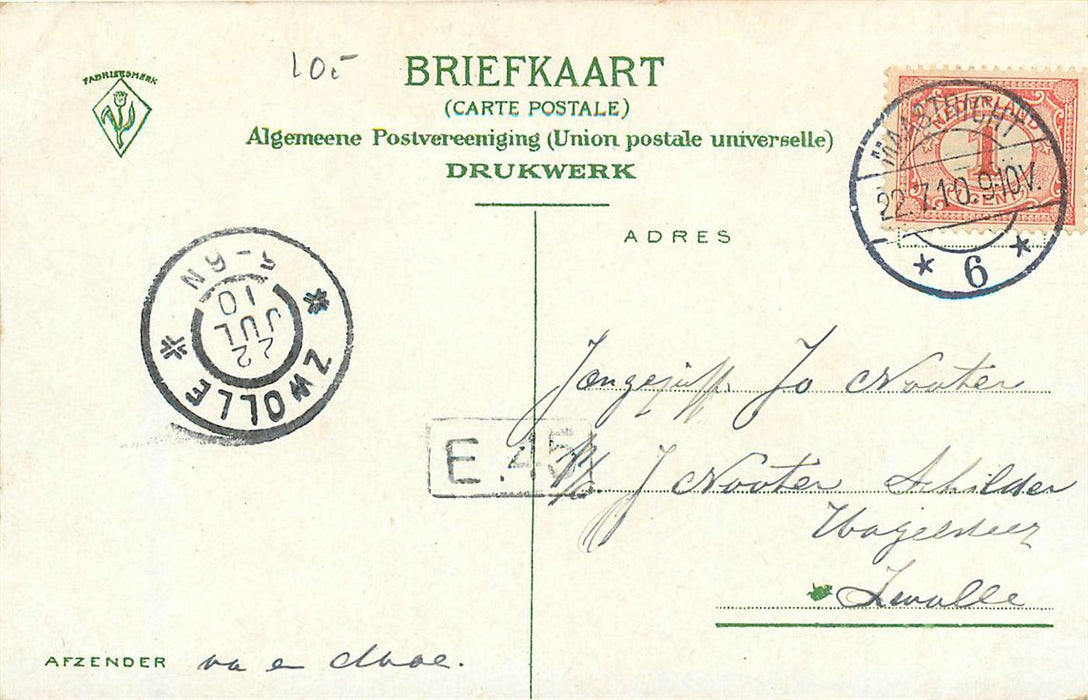 FABRIEKSMERK
10.-
BRIEFKAART
(CARTE POSTALE)
Algemeene Postvereeniging (Union postale universelle)
DRUKWERK
NEDERLAND
1
CENT
MAASTRICHT
22.7.10.9-10V.
* 6 *
ADRES
5-6N
22
JUL
10
* ZWOLLE *
E.45
Jongejuff. Jo Nooter
p/a J Nooter Schilder
Zwolle
AFZENDER va en Moe.